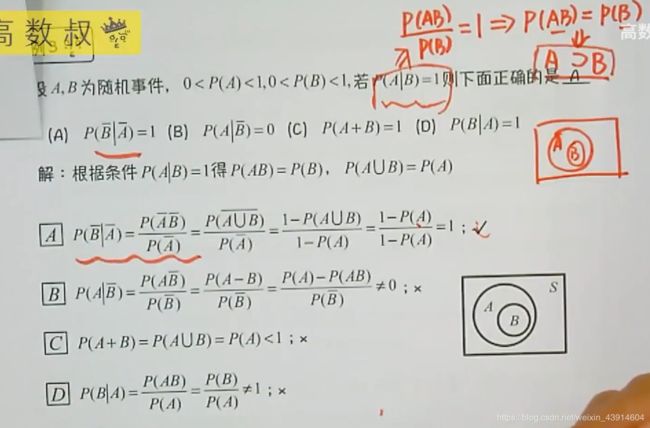 高数叔
P(AB)/P(B)=1⇒P(AB)=P(B)
A⊃B
设A,B为随机事件，0<P(A)<1,0<P(B)<1,若P(A|B)=1则下面正确的是 A
(A) P(B̅|A̅)=1 (B) P(A|B̅)=0 (C) P(A+B)=1 (D) P(B|A)=1
A B
解：根据条件P(A|B)=1得P(AB)=P(B)，P(A∪B)=P(A)
A P(B̅|A̅)=P(A̅B̅)/P(A̅)=P(A̅∪̅B̅)/P(A̅)=(1-P(A∪B))/(1-P(A))=(1-P(A))/(1-P(A))=1；✓
B P(A|B̅)=P(AB̅)/P(B̅)=P(A-B)/P(B̅)=(P(A)-P(AB))/P(B̅)≠0；×
S
A B
C P(A+B)=P(A∪B)=P(A)<1；×
D P(B|A)=P(AB)/P(A)=P(B)/P(A)≠1；×
https://blog.csdn.net/weixin_43914604